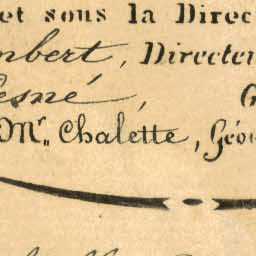 et sous la Direc
mbert, Directeu
esné, G
Mr. Chalette, Géo